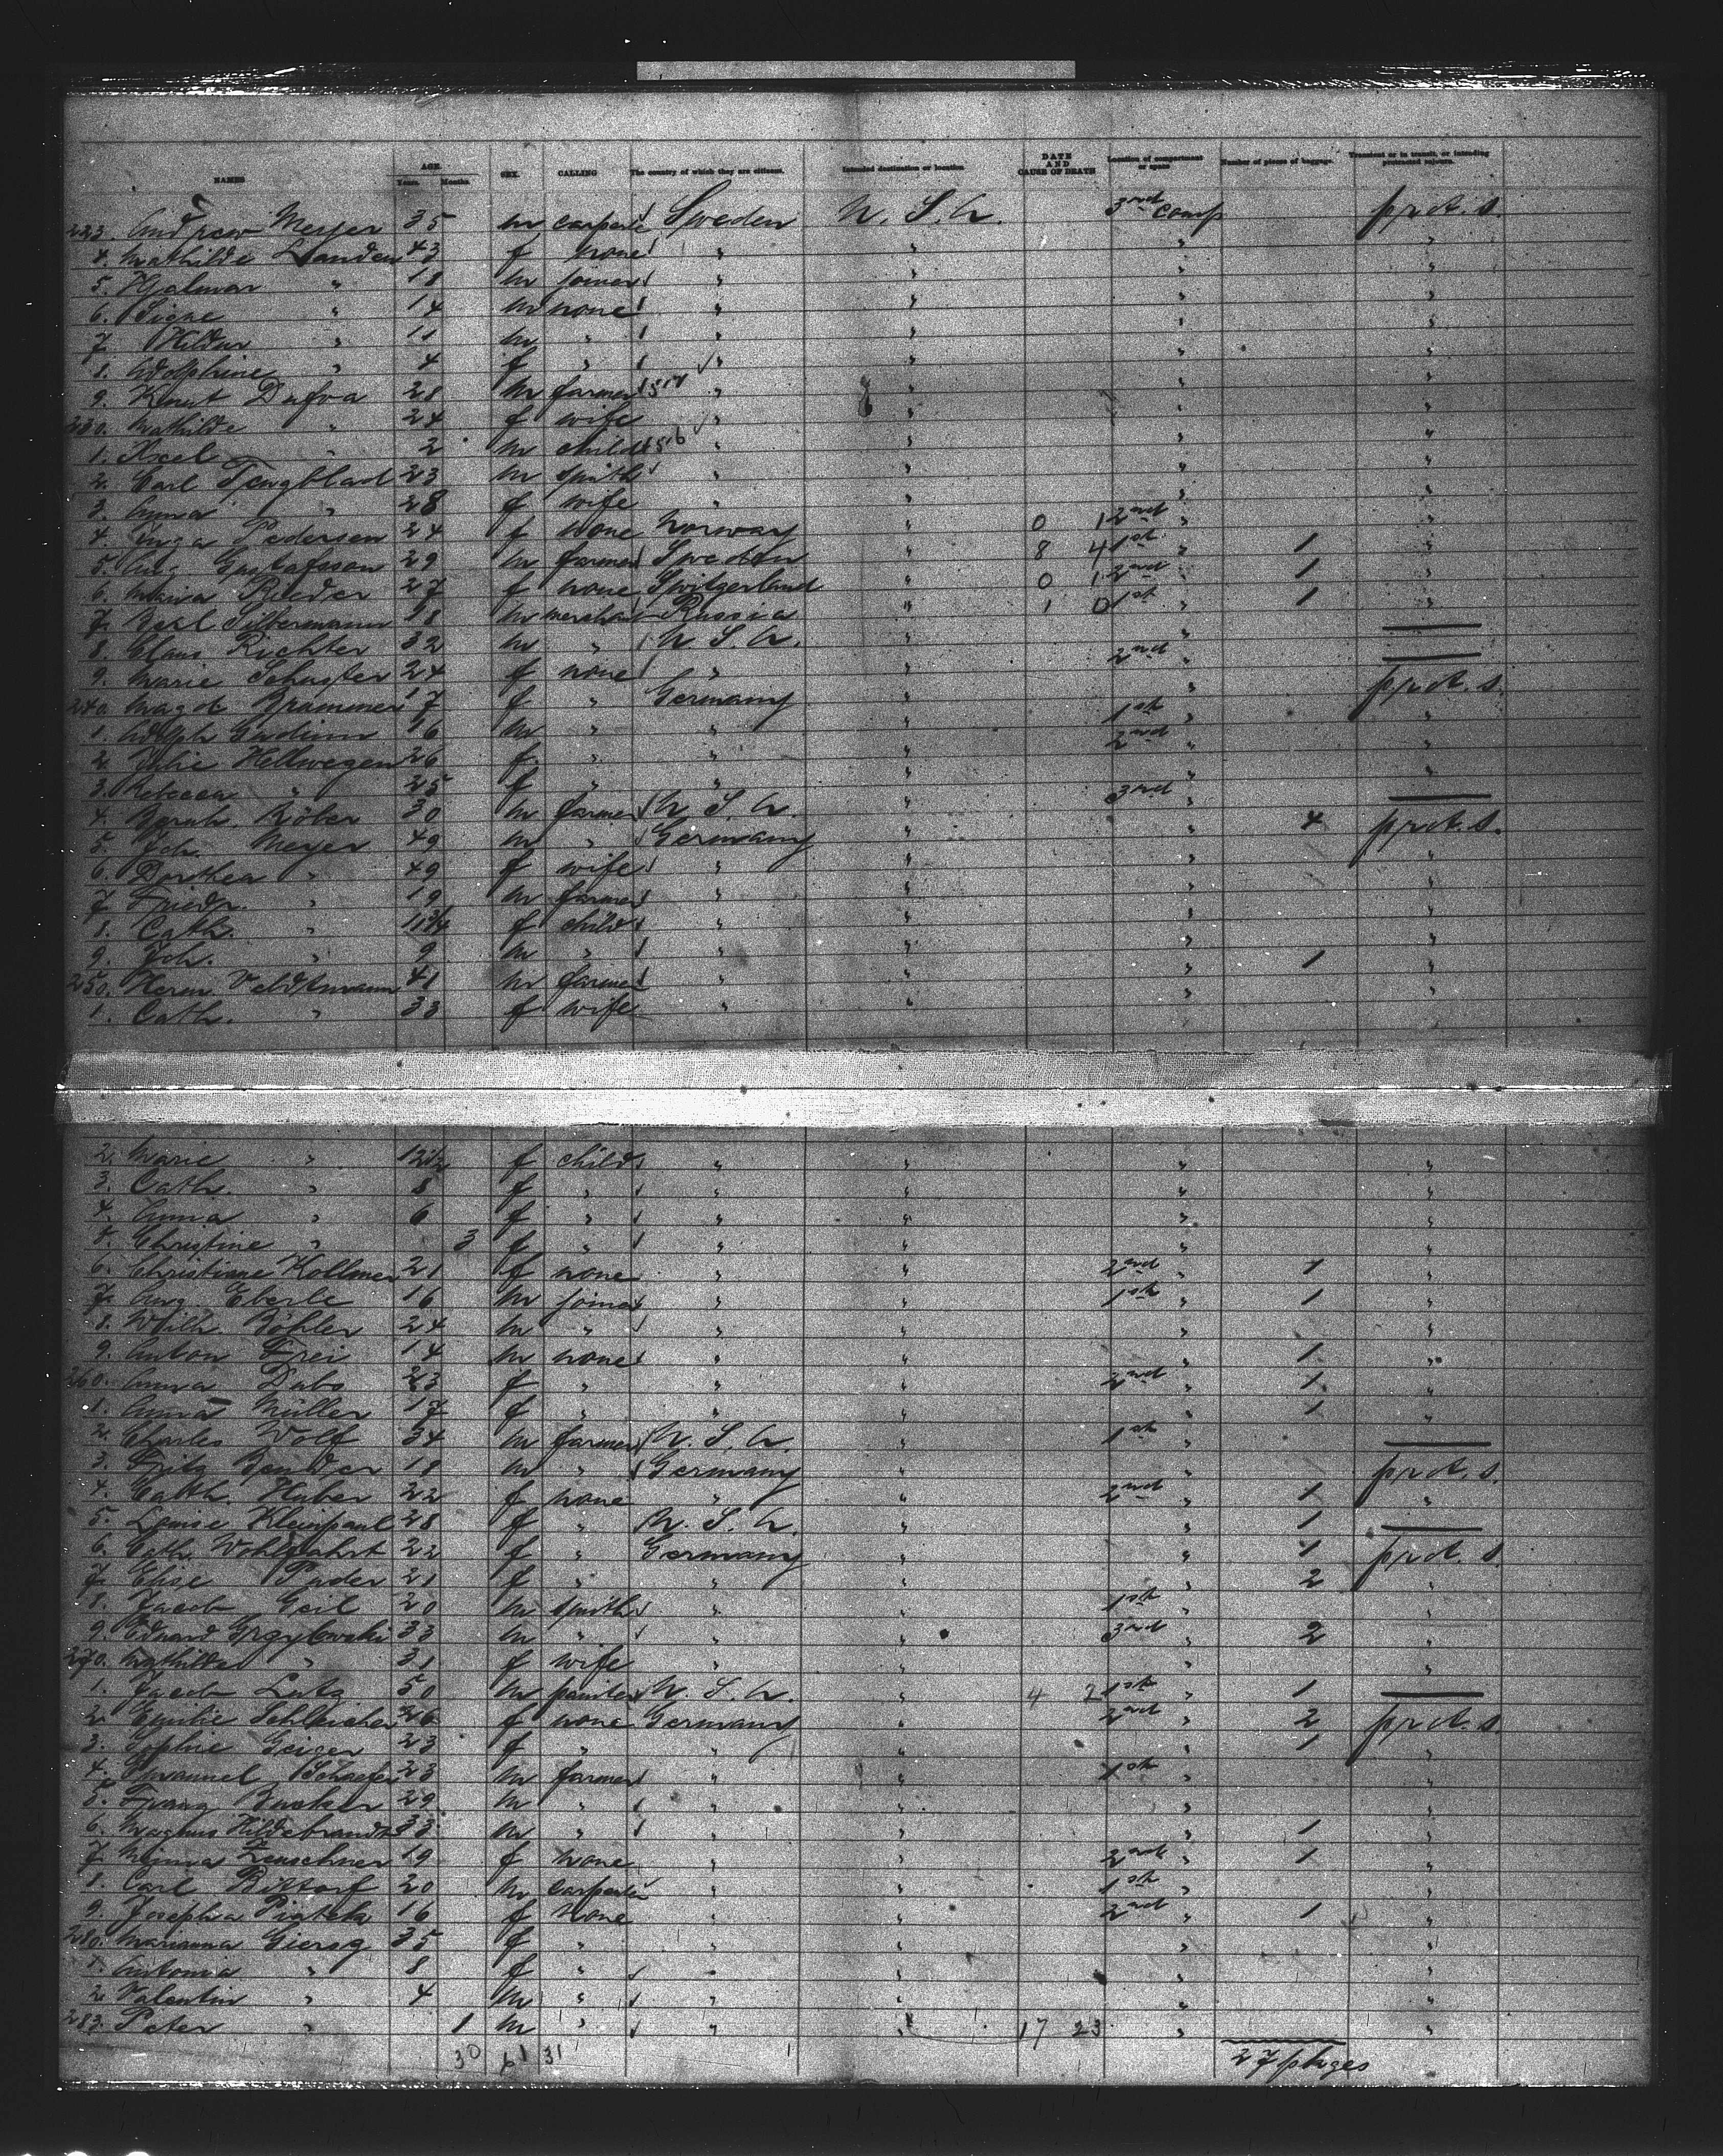 NAMES AGE Years. Months. SEX. CALLING The country of which they are citizens. Intended destination or location. DATE AND CAUSE OF DEATH Location of compartment or space Number of pieces of baggage. Transient or in transit, or intending protracted sojourn.
223. Andrew Meyer 35 m Sweden U. S. A. 3rd comp prct. s.
4. Mathilde 43 f none " " " "
5. Hjalmar " 18 m joiner " " " "
6. Signe " 14 m none " " " "
7. " 11 m " " " " "
8. Adolphine " 4 f " " " " "
9. Knut Dufva 28 m farmer " " " "
230. Mathilde " 24 f wife " " " "
1. Axel " 2 m child " " " "
2. Carl 23 m smith " " " "
3. Anna " 28 f wife " " " "
4. Inga Pedersen 24 f none Norway " 0 1 2nd " "
5. Gustafsson 29 m farmer Sweden " 8 4 1st " 1 "
6. Maria Rieder 27 f none Switzerland " 0 1 2nd " 1 "
7. Silbermann 18 m merchant Russia " 1 0 1st " 1 "
8. Claus Richter 32 m " U. S. A. " " —
9. Marie Schuster 24 f none " " 2nd " —
240. Magd. Brammer 17 f " Germany " " prct. s.
1. Adolph 16 m " " " 1st " "
2. Julie Hellwegen 26 f " " " 2nd " "
3. Rebecca " 25 f " " " " "
4. Röber 30 m farmer U. S. A. " 3rd " —
5. Joh. Meyer 49 m " Germany " " 4 prct. s.
6. Dorthea " 49 f wife " " " "
7. Friedr. " 19 m farmer " " " "
8. Cath. " 11 3/4 f child " " " "
9. Joh. " 9 m " " " " "
250. Herm Veldtmann 41 m farmer " " " 1 "
1. Cath. " 33 f wife " " " "
2. Marie " f child " " " "
3. Cath. " 8 f " " " " "
4. Anna " 6 f " " " " "
5. Christine " 3 f " " " " "
6. Christiane Kollmer 21 f none " " 2nd " 1 "
7. Aug. Eberle 16 m joiner " " 1st " 1 "
8. Wilh. Böhler 24 m " " " " "
9. Anton Frei 14 m none " " " 1 "
260. Anna Dabs 23 f " " " 2nd " 1 "
1. Anna Müller 17 f " " " 1 "
2. Charles Wolf 34 m farmer U. S. A. " 1st " —
3. Fritz Bender 18 m " Germany " " prct. s.
4. Cath. Huber 22 f none " " 2nd " 1 "
5. Louise Kleinpaul 28 f " U. S. A. " " 1 —
6. Cath. Wohlfahrt 22 f " Germany " " 1 prct. s.
7. Elise Pader 21 f " " " " 2 "
8. Jacob Geil 20 m smith " " 1st " "
9. Eduard 33 m " " " 3rd " 2 "
270. Mathilde " 31 f wife " " " "
1. Jacob Lutz 50 m painter U. S. A. " 4 2 1st " 1 —
2. Emilie Schleicher 26 f none Germany " 2nd " 2 prct. s.
3. Sophie Geiger 23 f " " " " 1 "
4. Emanuel Schaefer 23 m farmer " " 1st " "
5. Franz Bucker 29 m " " " " "
6. Magnus Hildebrandt 33 m " " " " 1 "
7. Minna Zenschner 19 f none " " 2nd " 1 "
8. Carl Rittorf 20 m carpenter " " 1st " "
9. Josepha Piatek 16 f none " " 2nd " 1 "
280. Marianna 35 f " " " " "
1. Antonia " 8 f " " " " "
2. Valentin " 4 m " " " " "
283. Peter " 1 m " " " 17 23 " "
30 61 31 27 pkges